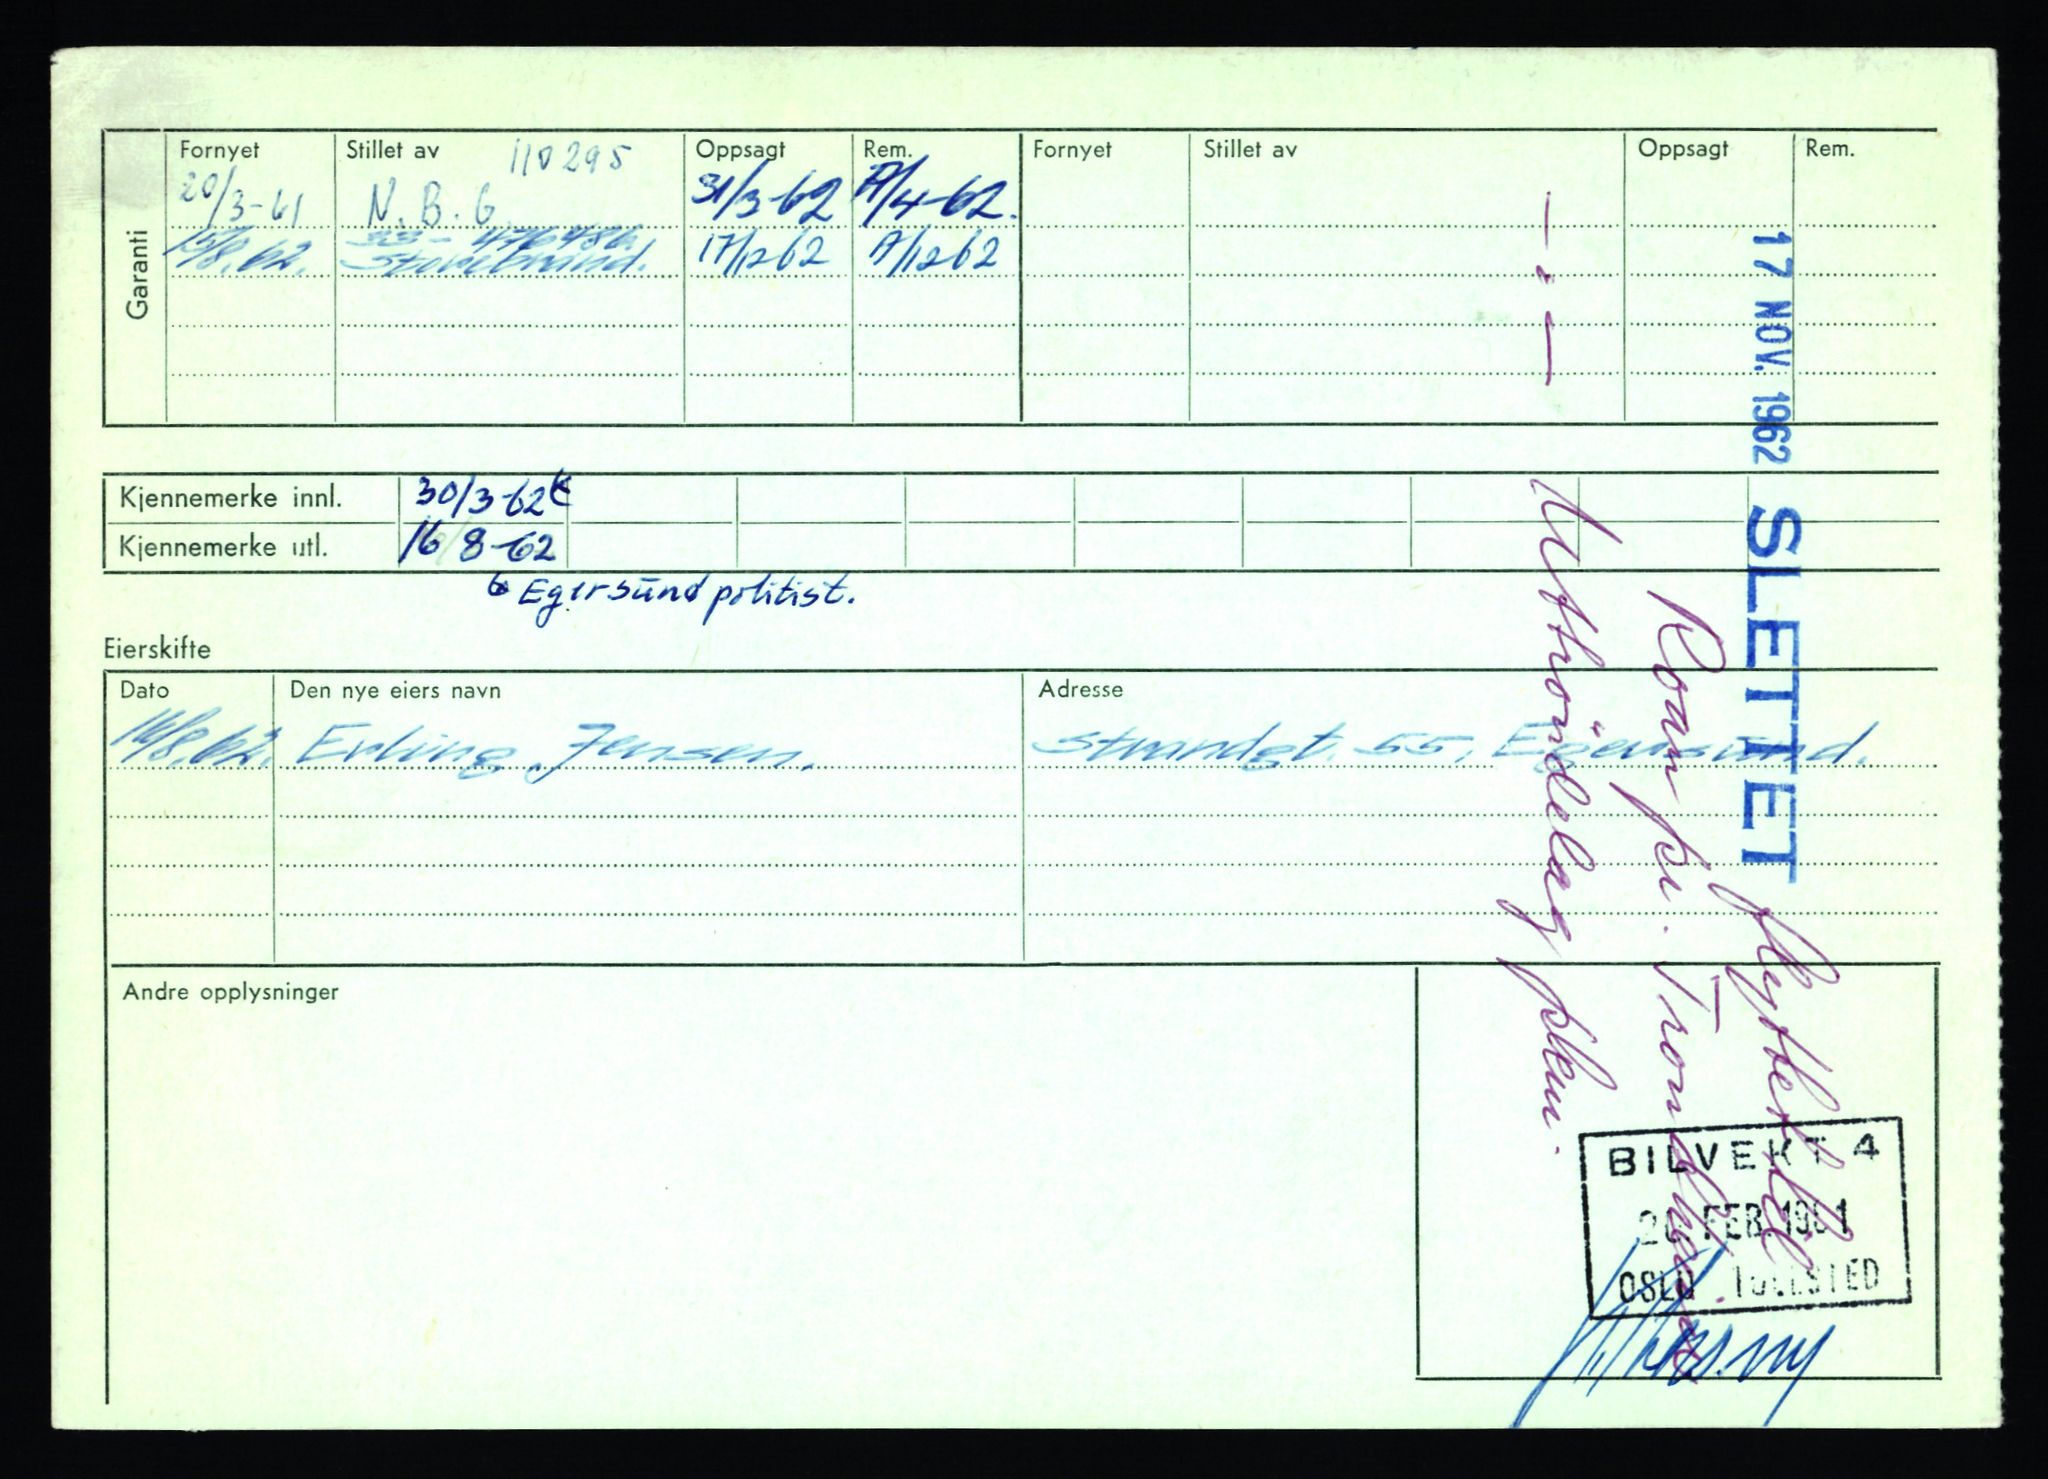 Garanti
Fornyet Stillet av 110295 Oppsagt Rem. Fornyet Stillet av Oppsagt Rem.
20/3-61 N.B.G 31/3-62 /4-62.
15/8.62. 33-476486 Storebrand. 17/12 62 /12 62
Kjennemerke innl. 30/3-62
Kjennemerke utl. 16/8-62
Egersund politist.
Eierskifte
Dato Den nye eiers navn Adresse
14/8.62. Erling Jensen. Strandgt. 55, Egersund.
Andre opplysninger
17 NOV. 1962 SLETTET flyttet til
Roan pr. Trondheim
Uttröndelag pkm.
— : —
BILVERT 4
FEB. 1961
OSLO TOLLSTED